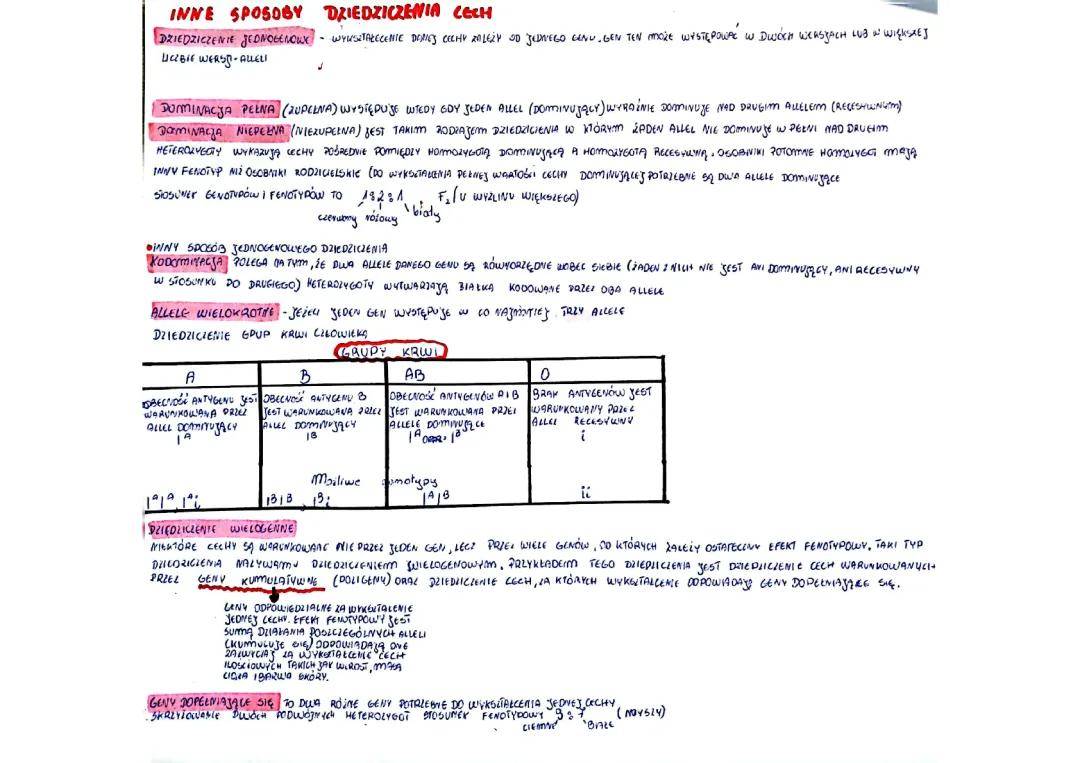 INNE SPOSOBY DZIEDZICZENIA CECH
DZIEDZICZENIE JEDNOGENOWE - WYKSZTAŁCENIE DANEJ CECHY ZALEŻY OD JEDNEGO GENU. GEN TEN MOŻE WYSTĘPOWAĆ W DWÓCH WERSJACH LUB W WIĘKSZEJ
LICZBIE WERSJI - ALLELI
DOMINACJA PEŁNA (ZUPEŁNA) WYSTĘPUJE WTEDY GDY JEDEN ALLEL (DOMINUJĄCY) WYRAŹNIE DOMINUJE NAD DRUGIM ALLELEM (RECESYWNYM)
DOMINACJA NIEPEŁNA (NIEZUPEŁNA) JEST TAKIM RODZAJEM DZIEDZICZENIA W KTÓRYM ŻADEN ALLEL NIE DOMINUJE W PEŁNI NAD DRUGIM
HETEROZYGOTY WYKAZUJĄ CECHY POŚREDNIE POMIĘDZY HOMOZYGOTĄ DOMINUJĄCĄ A HOMOZYGOTĄ RECESYWNĄ. OSOBNIKI POTOMNE HOMOZYGOT MAJĄ
INNY FENOTYP NIŻ OSOBNIKI RODZICIELSKIE (DO WYKSZTAŁCENIA PEŁNEJ WARTOŚCI CECHY DOMINUJĄCEJ POTRZEBNE SĄ DWA ALLELE DOMINUJĄCE
STOSUNEK GENOTYPÓW I FENOTYPÓW TO 1:2:1 F2 (U WYŻLINU WIĘKSZEGO)
czerwony różowy biały
• INNY SPOSÓB JEDNOGENOWEGO DZIEDZICZENIA
KODOMINACJA POLEGA NA TYM, ŻE DWA ALLELE DANEGO GENU SĄ RÓWNORZĘDNE WOBEC SIEBIE (ŻADEN Z NICH NIE JEST ANI DOMINUJĄCY, ANI RECESYWNY
W STOSUNKU DO DRUGIEGO) HETEROZYGOTY WYTWARZAJĄ BIAŁKA KODOWANE PRZEZ OBA ALLELE
ALLELE WIELOKROTNE - JEŻELI JEDEN GEN WYSTĘPUJE W CO NAJMNIEJ TRZY ALLELE
DZIEDZICZENIE GRUP KRWI CZŁOWIEKA
GRUPY KRWI
A B AB O
OBECNOŚĆ ANTYGENU JEST WARUNKOWANA PRZEZ ALLEL DOMINUJĄCY
I^A
OBECNOŚĆ ANTYGENU B JEST WARUNKOWANA PRZEZ ALLEL DOMINUJĄCY
I^B
OBECNOŚĆ ANTYGENÓW A I B JEST WARUNKOWANA PRZEZ ALLELE DOMINUJĄCE
I^A ORAZ I^B
BRAK ANTYGENÓW JEST WARUNKOWANY PRZEZ ALLEL RECESYWNY
i
Możliwe genotypy
I^A I^A, I^A i I^B I^B, I^B i I^A I^B ii
DZIEDZICZENIE WIELOGENNE
NIEKTÓRE CECHY SĄ WARUNKOWANE NIE PRZEZ JEDEN GEN, LECZ PRZEZ WIELE GENÓW, OD KTÓRYCH ZALEŻY OSTATECZNY EFEKT FENOTYPOWY. TAKI TYP
DZIEDZICZENIA NAZYWAMY DZIEDZICZENIEM WIELOGENOWYM. PRZYKŁADEM TEGO DZIEDZICZENIA JEST DZIEDZICZENIE CECH WARUNKOWANYCH
PRZEZ GENY KUMULATYWNE (POLIGENY) ORAZ DZIEDZICZENIE CECH, ZA KTÓRYCH WYKSZTAŁCENIE ODPOWIADAJĄ GENY DOPEŁNIAJĄCE SIĘ.
GENY ODPOWIEDZIALNE ZA WYKSZTAŁCENIE
JEDNEJ CECHY. EFEKT FENOTYPOWY JEST
SUMĄ DZIAŁANIA POSZCZEGÓLNYCH ALLELI
(KUMULUJE SIĘ) ODPOWIADAJĄ ONE
ZAZWYCZAJ ZA WYKSZTAŁCENIE CECH
ILOŚCIOWYCH TAKICH JAK WZROST, MASA
CIAŁA I BARWA SKÓRY.
GENY DOPEŁNIAJĄCE SIĘ TO DWA RÓŻNE GENY POTRZEBNE DO WYKSZTAŁCENIA JEDNEJ CECHY
SKRZYŻOWANIE DWÓCH PODWÓJNYCH HETEROZYGOT STOSUNEK FENOTYPOWY 9:7 (MYSZY)
CIEMNE BIAŁE